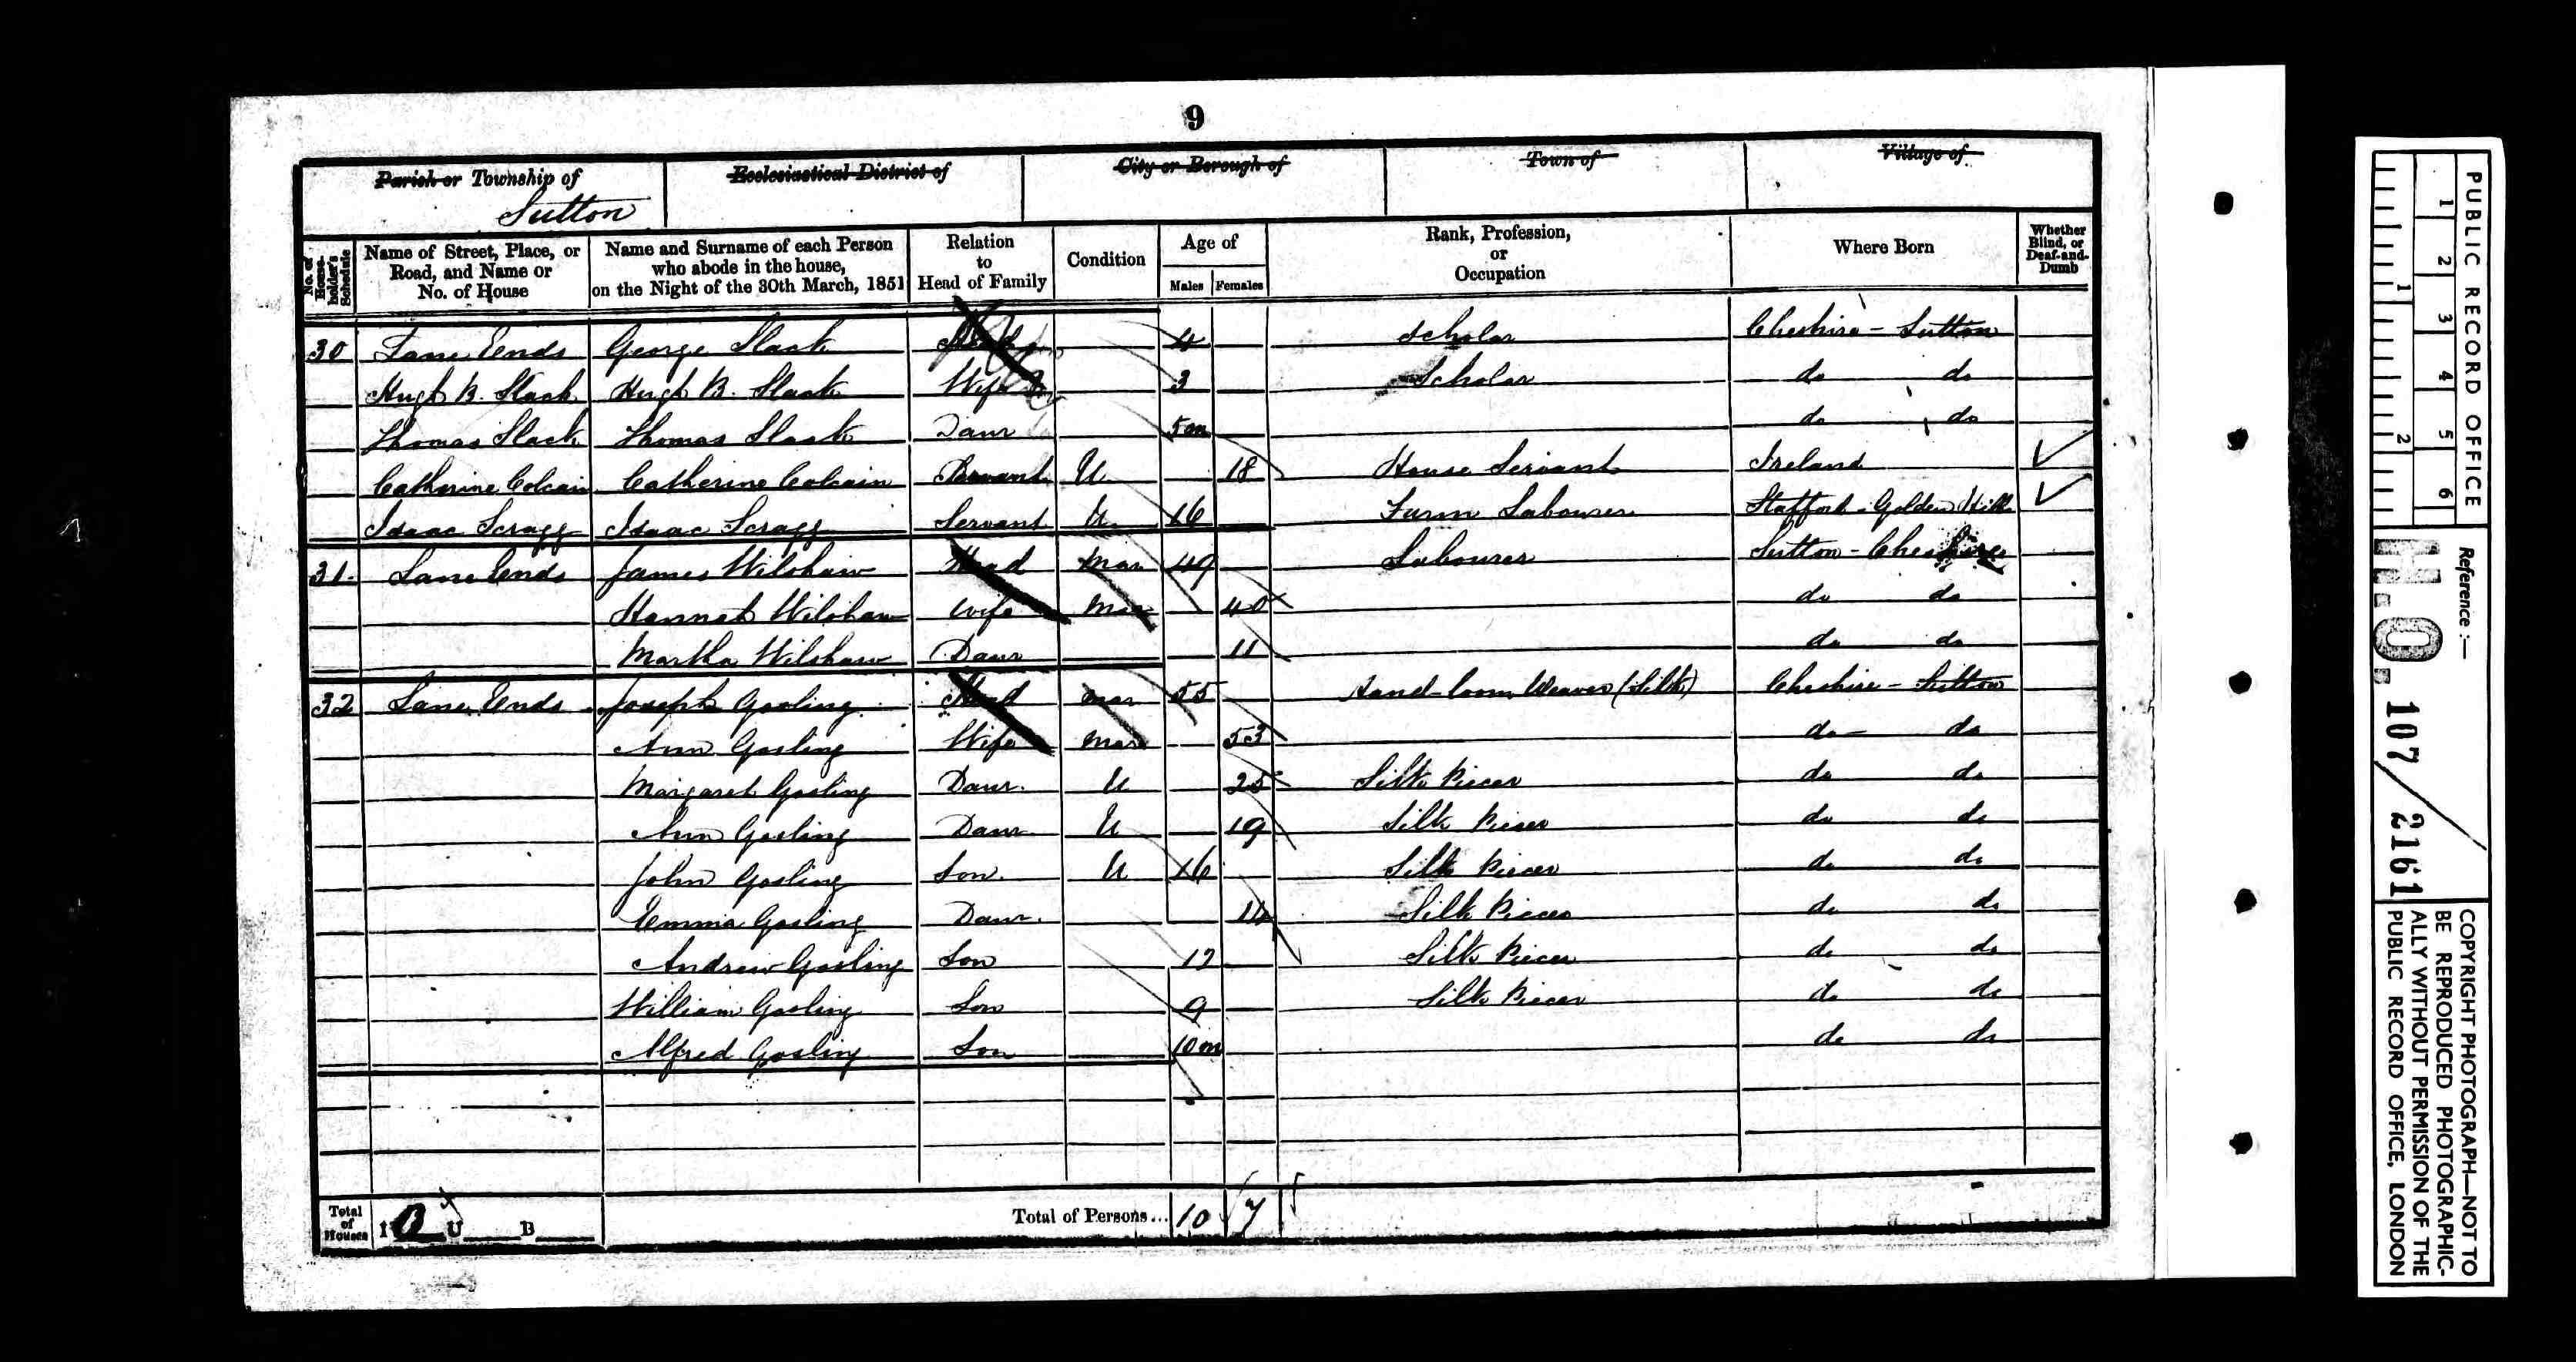 9
Parish or Township of
Sutton
Ecclesiastical District of
City or Borough of
Town of
Village of
No. of House-holder's Schedule
Name of Street, Place, or Road, and Name or No. of House
Name and Surname of each Person who abode in the house, on the Night of the 30th March, 1851
Relation to Head of Family
Condition
Age of
Males Females
Rank, Profession, or Occupation
Where Born
Whether Blind, or Deaf-and-Dumb
30 Lane Ends George Slack 4 Scholar Cheshire - Sutton
Hugh B. Slack Hugh B. Slack Wife 3 Scholar do do
Thomas Slack Thomas Slack Daur 5m do do
Catherine Colcain Catherine Colcain Servant U 18 House Servant Ireland
Isaac Scragg Isaac Scragg Servant U 16 Farm Labourer Stafford - Golden Hill
31 Lane Ends James Wilshaw Head Mar 49 Labourer Sutton - Cheshire
Hannah Wilshaw Wife Mar 40 do do
Martha Wilshaw Daur 11 do do
32 Lane Ends Joseph Gosling Head Mar 55 Hand-loom Weaver (Silk) Cheshire - Sutton
Ann Gosling Wife Mar 53 do do
Margaret Gosling Daur. U 25 Silk Piecer do do
Ann Gosling Daur U 19 Silk Piecer do do
John Gosling Son U 16 Silk Piecer do do
Emma Gosling Daur. 14 Silk Piecer do do
Andrew Gosling Son 12 Silk Piecer do do
William Gosling Son 9 Silk Piecer do do
Alfred Gosling Son 10m do do
Total of Houses I U B
Total of Persons... 10 7
PUBLIC RECORD OFFICE
1 2 3 4 5 6
1 2
Reference :—
H.O. 107/2161
COPYRIGHT PHOTOGRAPH—NOT TO BE REPRODUCED PHOTOGRAPHIC-
ALLY WITHOUT PERMISSION OF THE
PUBLIC RECORD OFFICE, LONDON